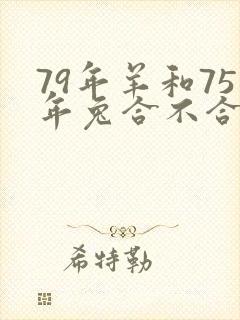 79年羊和75
年兔合不合
希特勒